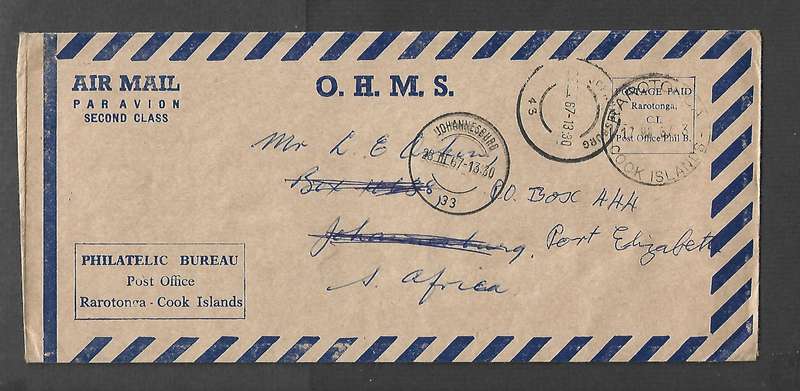 AIR MAIL
PAR AVION
SECOND CLASS
O. H. M. S.
POSTAGE PAID
Rarotonga,
C.I.
Post Office Phil B.
RAROTONGA
COOK ISLANDS
67-13.30
43
JOHANNESBURG
28 III 67-13.30
33
Mr L. E.
Box
P.O. Box 444
Johannesburg, Port Elizabeth
S. Africa
PHILATELIC BUREAU
Post Office
Rarotonga - Cook Islands